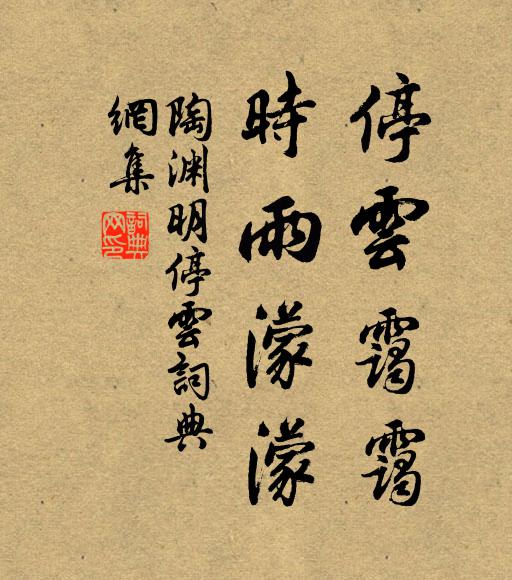 停雲靄靄
時雨濛濛
陶淵明停雲詞典
網集
詞典
网印